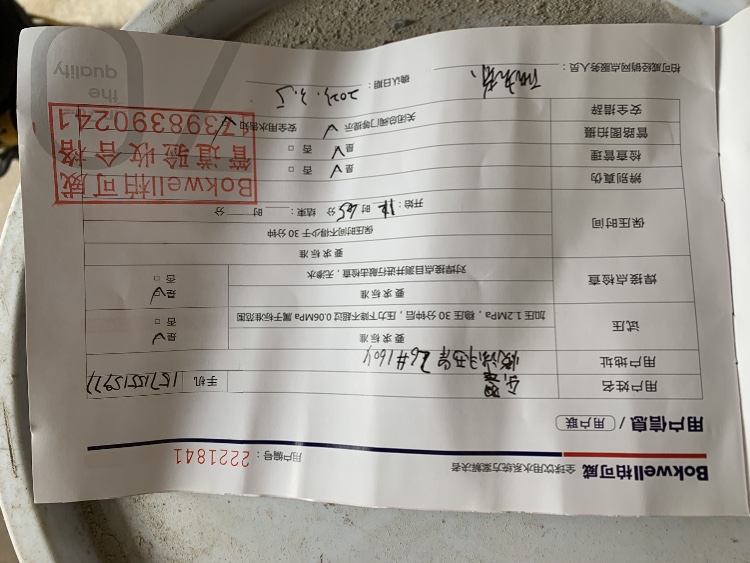 Bokwell柏可威 全球饮用水系统方案解决者
用户编号： 2221841
用户信息 / 用户联
用户姓名
手机
用户地址 26#1604
试压 要求标准 是
加压 1.2MPa，稳压 30 分钟后，压力下降不超过 0.06MPa 属于标准范围 否
焊接点检查 要求标准 是
对焊接点目测并进行敲击检查，无渗水 否
保压时间 要求标准
保压时间不得少于 30 分钟
开始： 12 时 45 分 结束： 时 分
辨别真伪 是 否
检查管理 是 否
管路图拍摄
安全措辞 关闭总阀门等提示 安全用水告知
Bokwell柏可威
管道验收合格
17398390241
柏可威经销网点服务人员：
确认日期： 2023.3.5
the
quality